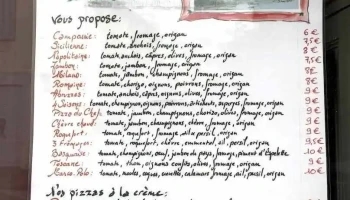 Vous propose:
Campanie: tomate, fromage, origan 6€
Sicilienne: tomate, anchois, fromage, origan 7,5€
Napolitaine: tomate, anchois, câpres, olives, fromage, origan 8€
Jambon: tomate, jambon, fromage, origan 7,5€
Milano: tomate, jambon, champignons, fromage, origan 8€
Romaine: tomate, chorizo, oignons, poivrons, fromage, origan
tomate, anchois, câpres, olives, fromage, origan
4 Saisons: tomate, champignons, oignons, poivrons, artichauts, asperges, fromage, origan
Pizza du Chef: tomate, jambon, champignons, chorizo, olives, fromage, origan 9€
Chèvre chaud: tomate, jambon, champignons, chèvre, fromage, origan 9€
Roquefort: tomate, roquefort, fromage, ail et persil, origan 9€
3 Fromages: tomate, roquefort, chèvre, emmental, ail, persil, origan 9,5€
Basquaise: tomate, champignons, oeuf, jambon de pays, fromage, piment d'Espelette 10€
Toscane: tomate, thon, oignons confits, olives, fromage, origan 9€
Marco Polo: tomate, moules, crevettes, calamars, fromage, ail, persil, origan 10€
Nos pizzas à la crème: